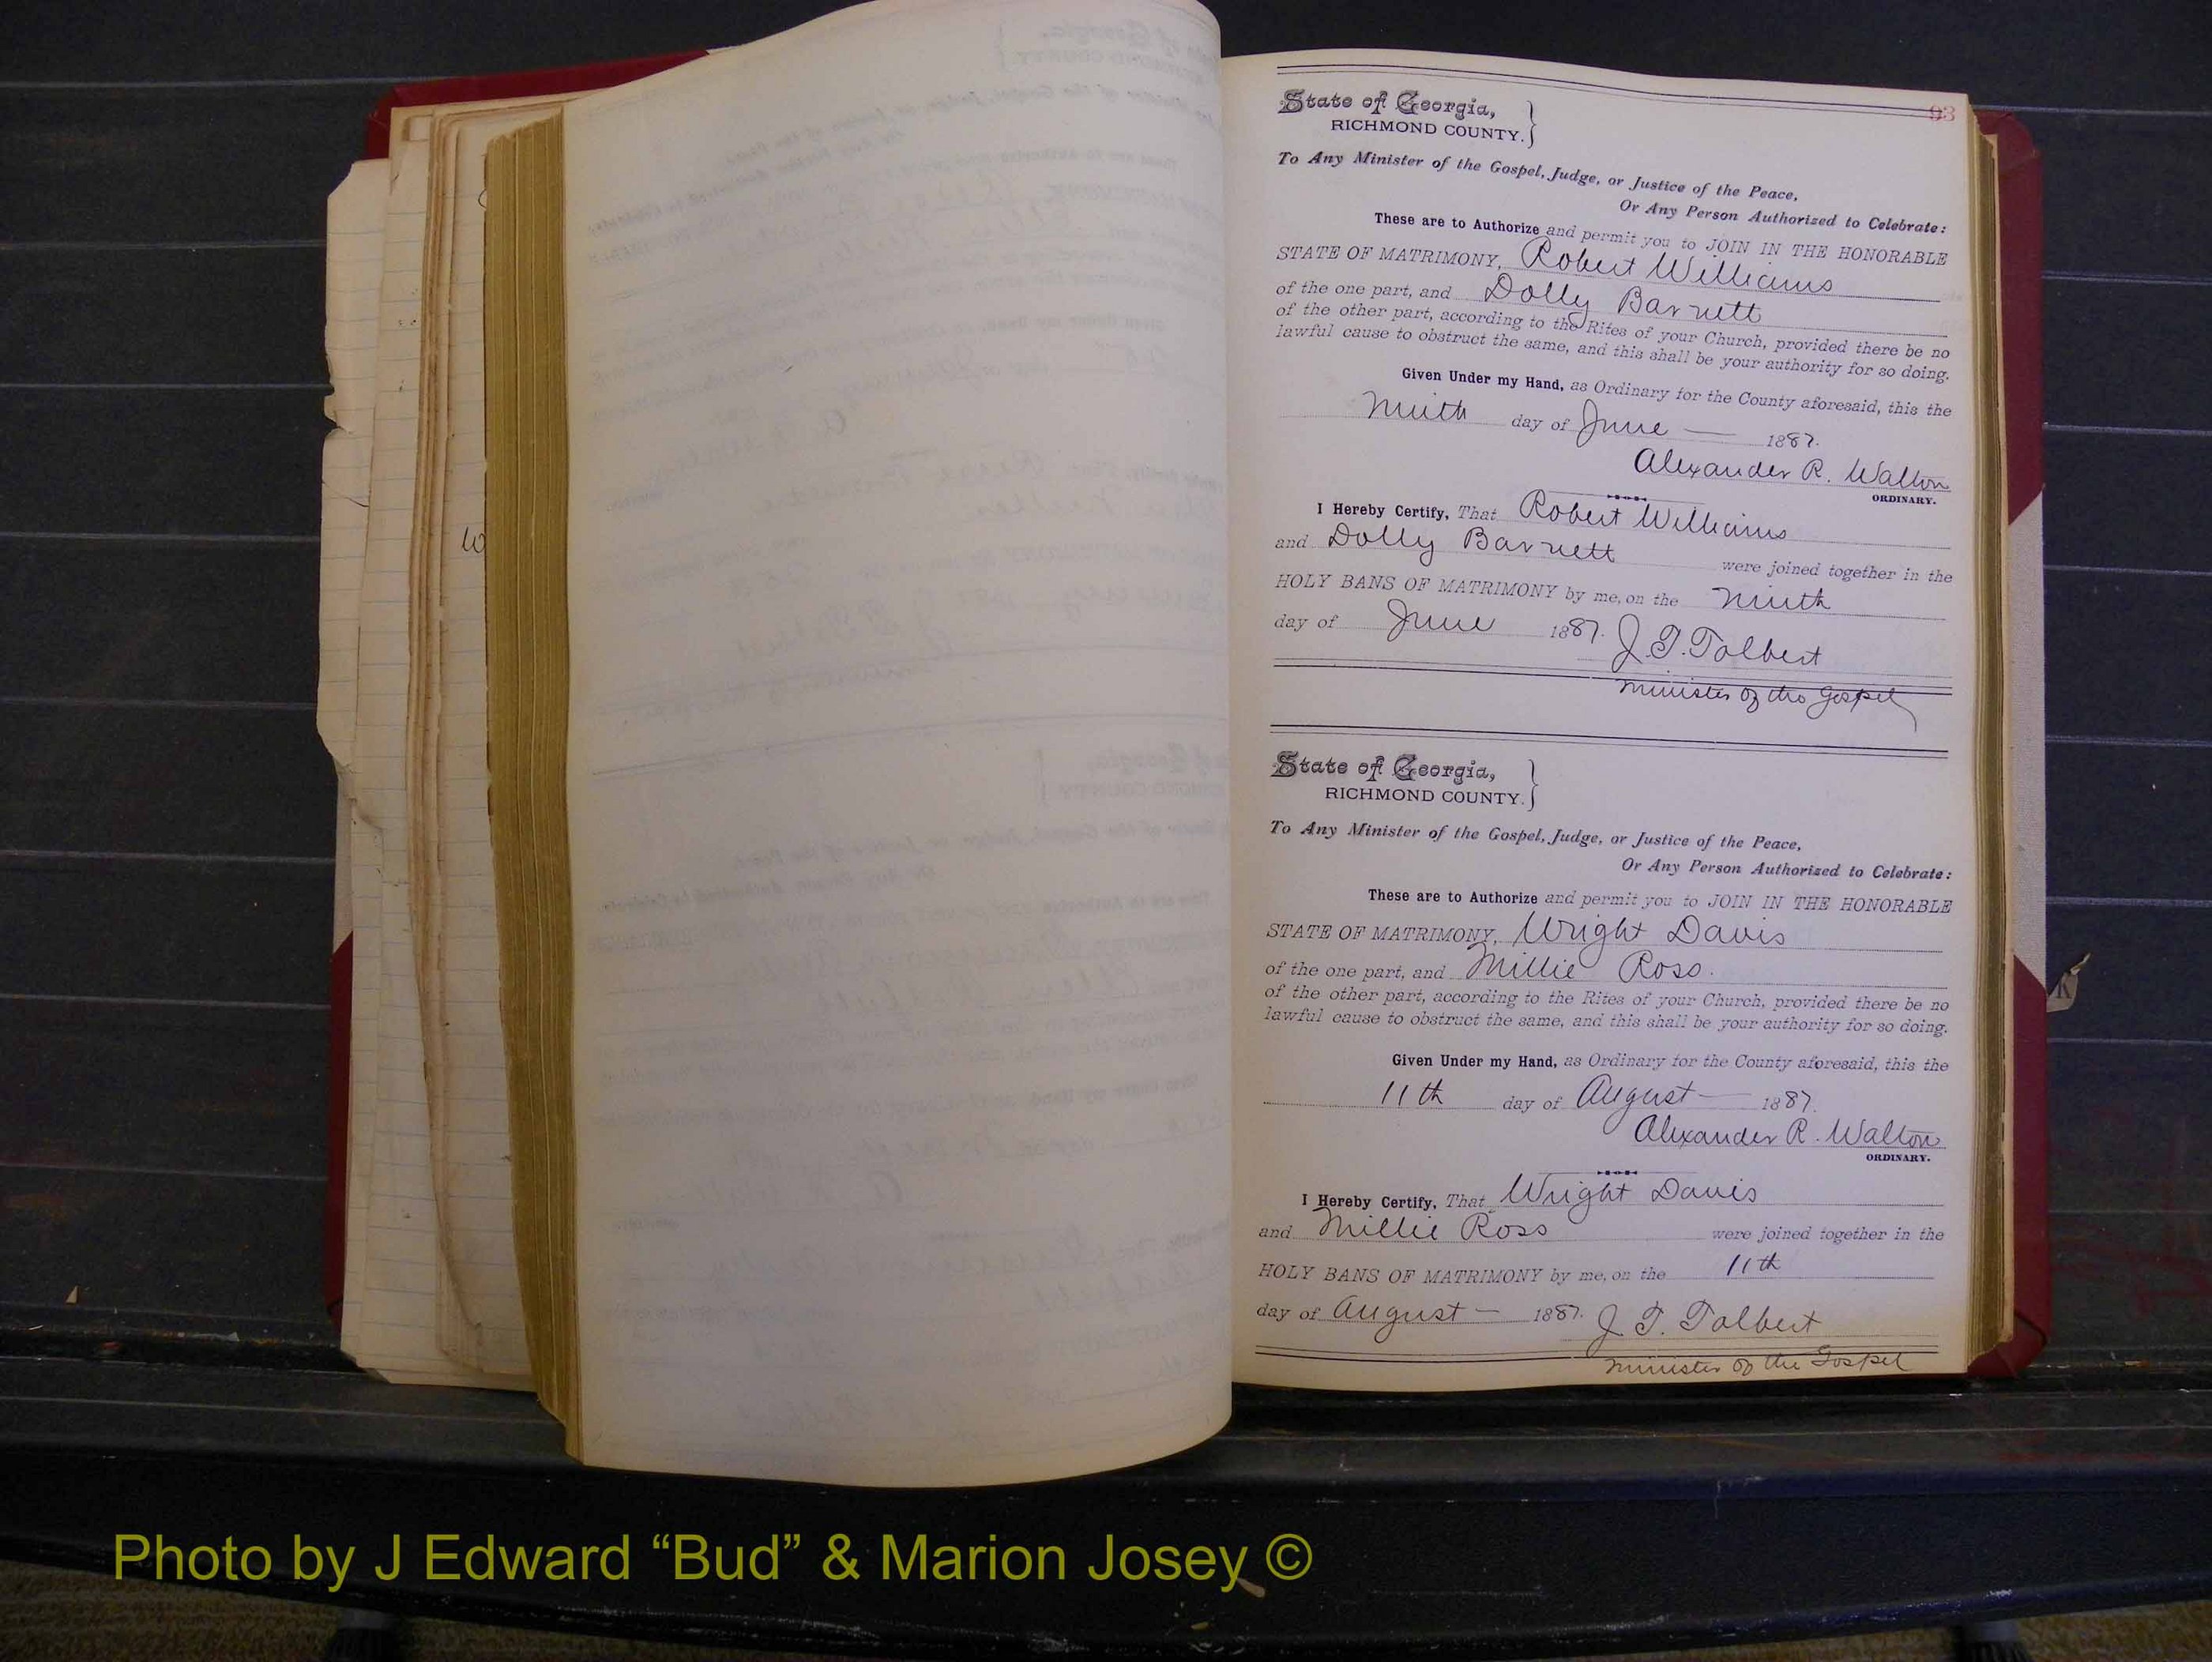 93
State of Georgia,
RICHMOND COUNTY.
To Any Minister of the Gospel, Judge, or Justice of the Peace,
Or Any Person Authorized to Celebrate:
These are to Authorize and permit you to JOIN IN THE HONORABLE
STATE OF MATRIMONY, Robert Williams
of the one part, and Dolly Barnett
of the other part, according to the Rites of your Church, provided there be no
lawful cause to obstruct the same, and this shall be your authority for so doing.
Given Under my Hand, as Ordinary for the County aforesaid, this the
Ninth day of June — 1887.
Alexander R. Walton
ORDINARY.
I Hereby Certify, That Robert Williams
and Dolly Barnett were joined together in the
HOLY BANS OF MATRIMONY by me, on the Ninth
day of June 1887. J. T. Tolbert
Minister of the Gospel
State of Georgia,
RICHMOND COUNTY.
To Any Minister of the Gospel, Judge, or Justice of the Peace,
Or Any Person Authorized to Celebrate:
These are to Authorize and permit you to JOIN IN THE HONORABLE
STATE OF MATRIMONY, Wright Davis
of the one part, and Millie Ross.
of the other part, according to the Rites of your Church, provided there be no
lawful cause to obstruct the same, and this shall be your authority for so doing.
Given Under my Hand, as Ordinary for the County aforesaid, this the
11th day of August — 1887.
Alexander R. Walton
ORDINARY.
I Hereby Certify, That Wright Davis
and Millie Ross were joined together in the
HOLY BANS OF MATRIMONY by me, on the 11th
day of August — 1887. J. T. Tolbert
Minister of the Gospel
K
Photo by J Edward “Bud” & Marion Josey ©